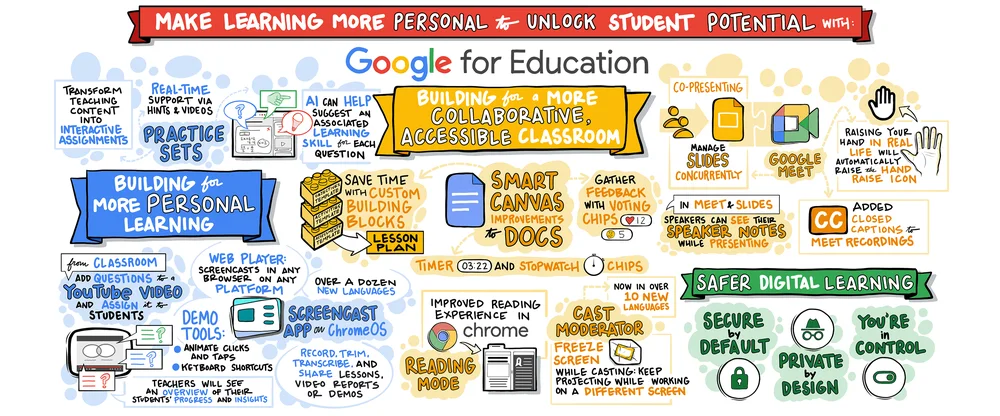 MAKE LEARNING MORE PERSONAL to UNLOCK STUDENT POTENTIAL WITH:
Google for Education
TRANSFORM
TEACHING
CONTENT
INTO
INTERACTIVE
ASSIGNMENTS
REAL-TIME
SUPPORT VIA
HINTS & VIDEOS
PRACTICE
SETS
AI CAN HELP
SUGGEST AN
ASSOCIATED
LEARNING
SKILL for EACH
QUESTION
BUILDING for
MORE PERSONAL
LEARNING
from CLASSROOM
ADD QUESTIONS to a
YouTube VIDEO
AND ASSIGN it to
STUDENTS
TEACHERS WILL SEE
AN OVERVIEW OF THEIR
STUDENTS' PROGRESS AND INSIGHTS
WEB PLAYER:
SCREENCASTS IN ANY
BROWSER ON ANY
PLATFORM
DEMO
TOOLS:
ANIMATE CLICKS
AND TAPS
KEYBOARD SHORTCUTS
OVER A DOZEN
NEW LANGUAGES
SCREENCAST
APP on ChromeOS
RECORD, TRIM,
TRANSCRIBE, AND
SHARE LESSONS,
VIDEO REPORTS
OR DEMOS
BUILDING for a MORE
COLLABORATIVE,
ACCESSIBLE CLASSROOM
SAVE TIME
WITH CUSTOM
BUILDING
BLOCKS
LESSON
PLAN
SMART
CANVAS
IMPROVEMENTS
to DOCS
GATHER
FEEDBACK
WITH VOTING
CHIPS
12
5
TIMER 03:22 AND STOPWATCH CHIPS
IMPROVED READING
EXPERIENCE IN
chrome
READING
MODE
NOW IN OVER
10 NEW
LANGUAGES
CAST
MODERATOR
FREEZE
SCREEN
WHILE CASTING: KEEP
PROJECTING WHILE WORKING
ON A DIFFERENT SCREEN
CO-PRESENTING
MANAGE
SLIDES
CONCURRENTLY
GOOGLE
MEET
RAISING YOUR
HAND IN REAL
LIFE WILL
AUTOMATICALLY
RAISE the HAND
RAISE ICON
IN MEET & SLIDES
SPEAKERS CAN SEE THEIR
SPEAKER NOTES
WHILE PRESENTING
CC
ADDED
CLOSED
CAPTIONS to
MEET RECORDINGS
SAFER DIGITAL LEARNING
SECURE
by
DEFAULT
PRIVATE
by
DESIGN
YOU'RE
in
CONTROL